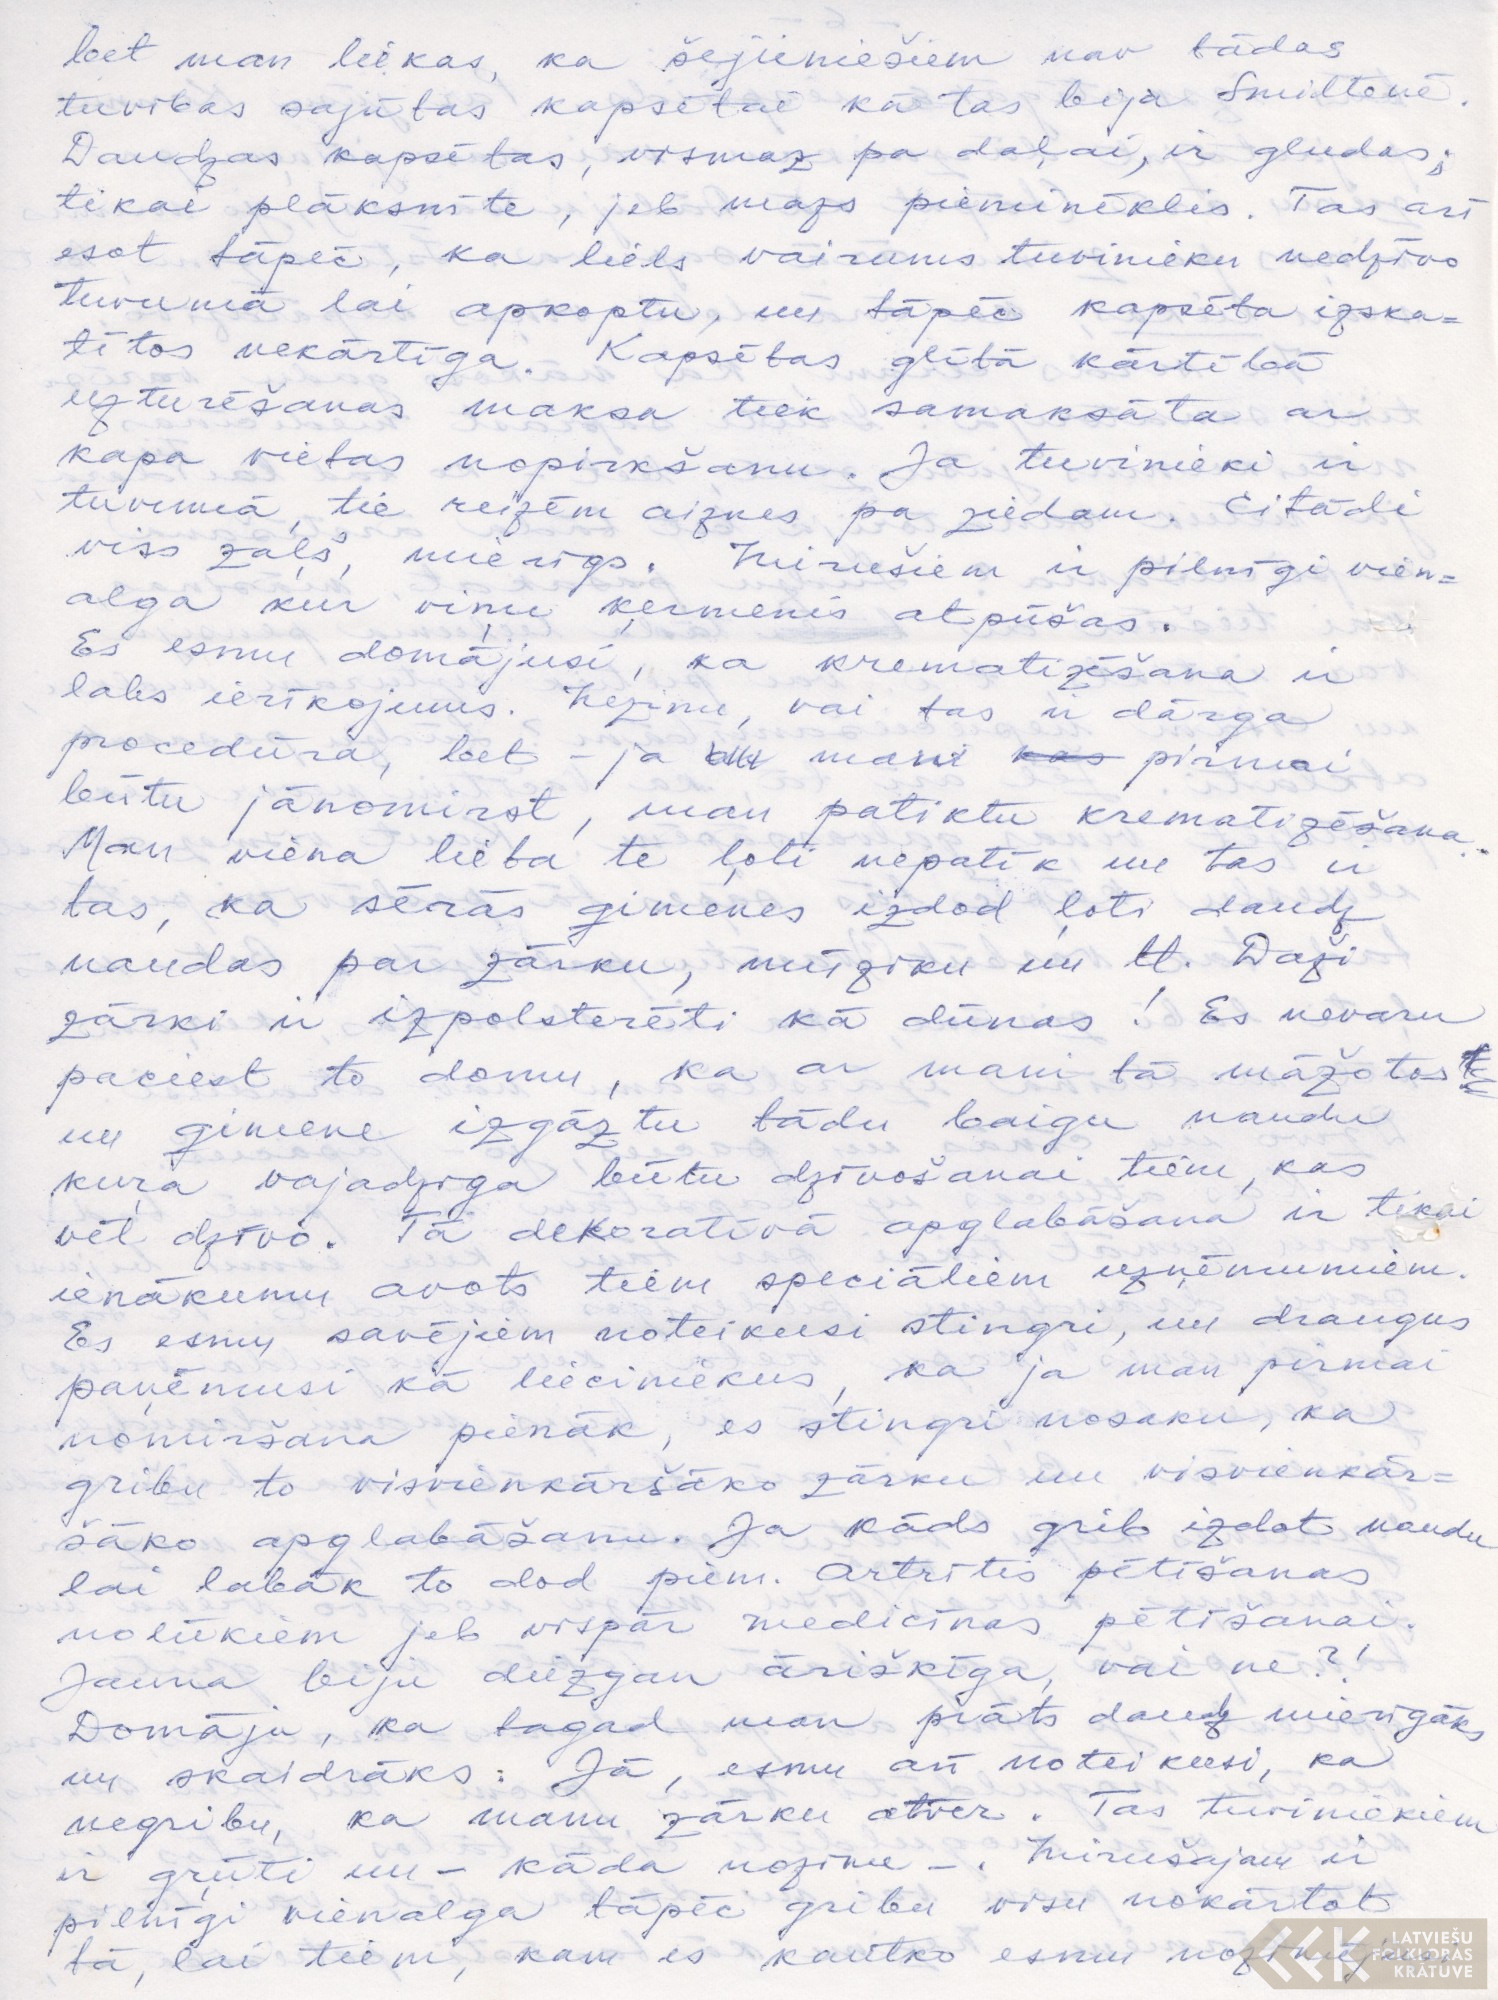 bet man liekas, ka šejieniešiem nav tādas
tuvības sajūtas kapsētai kā tas bija Smiltenē.
Daudzas kapsētas, vismaz pa daļai, ir gludas;
tikai plāksnīte, jeb mazs piemineklis. Tas arī
esot tāpēc, ka liels vairums tuvinieku nedzīvo
tuvumā lai apkoptu, un tāpēc kapsēta izska=
tītos nekārtīga. Kapsētas glītā kārtībā
uzturēšanas maksa tiek samaksāta ar
kapa vietas nopirkšanu. Ja tuvinieki ir
tuvumā, tie reizēm aiznes pa ziedam. Citādi
viss zaļš, mierīgs. Mirušiem ir pilnīgi vien=
alga kur viņu ķermenis atpūšas.
Es esmu domājusi, ka krematizēšana ir
labs ierīkojums. Nezinu, vai tas ir dārga
procedūra, bet – ja mani kas pirmai
būtu jānomirst, man patiktu krematizēšana.
Man viena lieta te ļoti nepatīk un tas ir
tas, ka sērās ģimenes izdod ļoti daudz
naudas par zārku, mūziku un tt. Daži
zārki ir izpolsterēti kā dūnas! Es nevaru
paciest to domu, ka ar mani tā māžotos
un ģimene izgāztu tādu baigu naudu
kuŗa vajadzīga būtu dzīvošanai tiem, kas
vēl dzīvo. Tā dekoratīvā apglabāšana ir tikai
ienākumu avots tiem speciāliem uzņēmumiem.
Es esmu savējiem noteikusi stingri, un draugus
paņēmusi kā lieciniekus, ka ja man pirmai
nomiršana pienāk, es stingri nosaku, ka
gribu to visvienkāršāko zārku un visvienkār=
šāko apglabāšanu. Ja kāds grib izdot naudu
lai labāk to dod piem. Artritis pētīšanas
nolūkiem jeb vispār medicīnas pētīšanai.
Jauna biju diezgan āriškīga, vai ne?!
Domāju, ka tagad man prāts daudz mierīgāks
un skaidrāks: Jā, esmu arī noteikusi, ka
negribu, ka manu zārku atver. Tas tuviniekiem
ir grūti un – kāda nozīme –. Mirušajam ir
pilnīgi vienalga tāpēc gribu visu nokārtot
tā, lai tiem, kam es kautko esmu nozīmējusi
LATVIEŠU
FOLKLORAS
KRĀTUVE